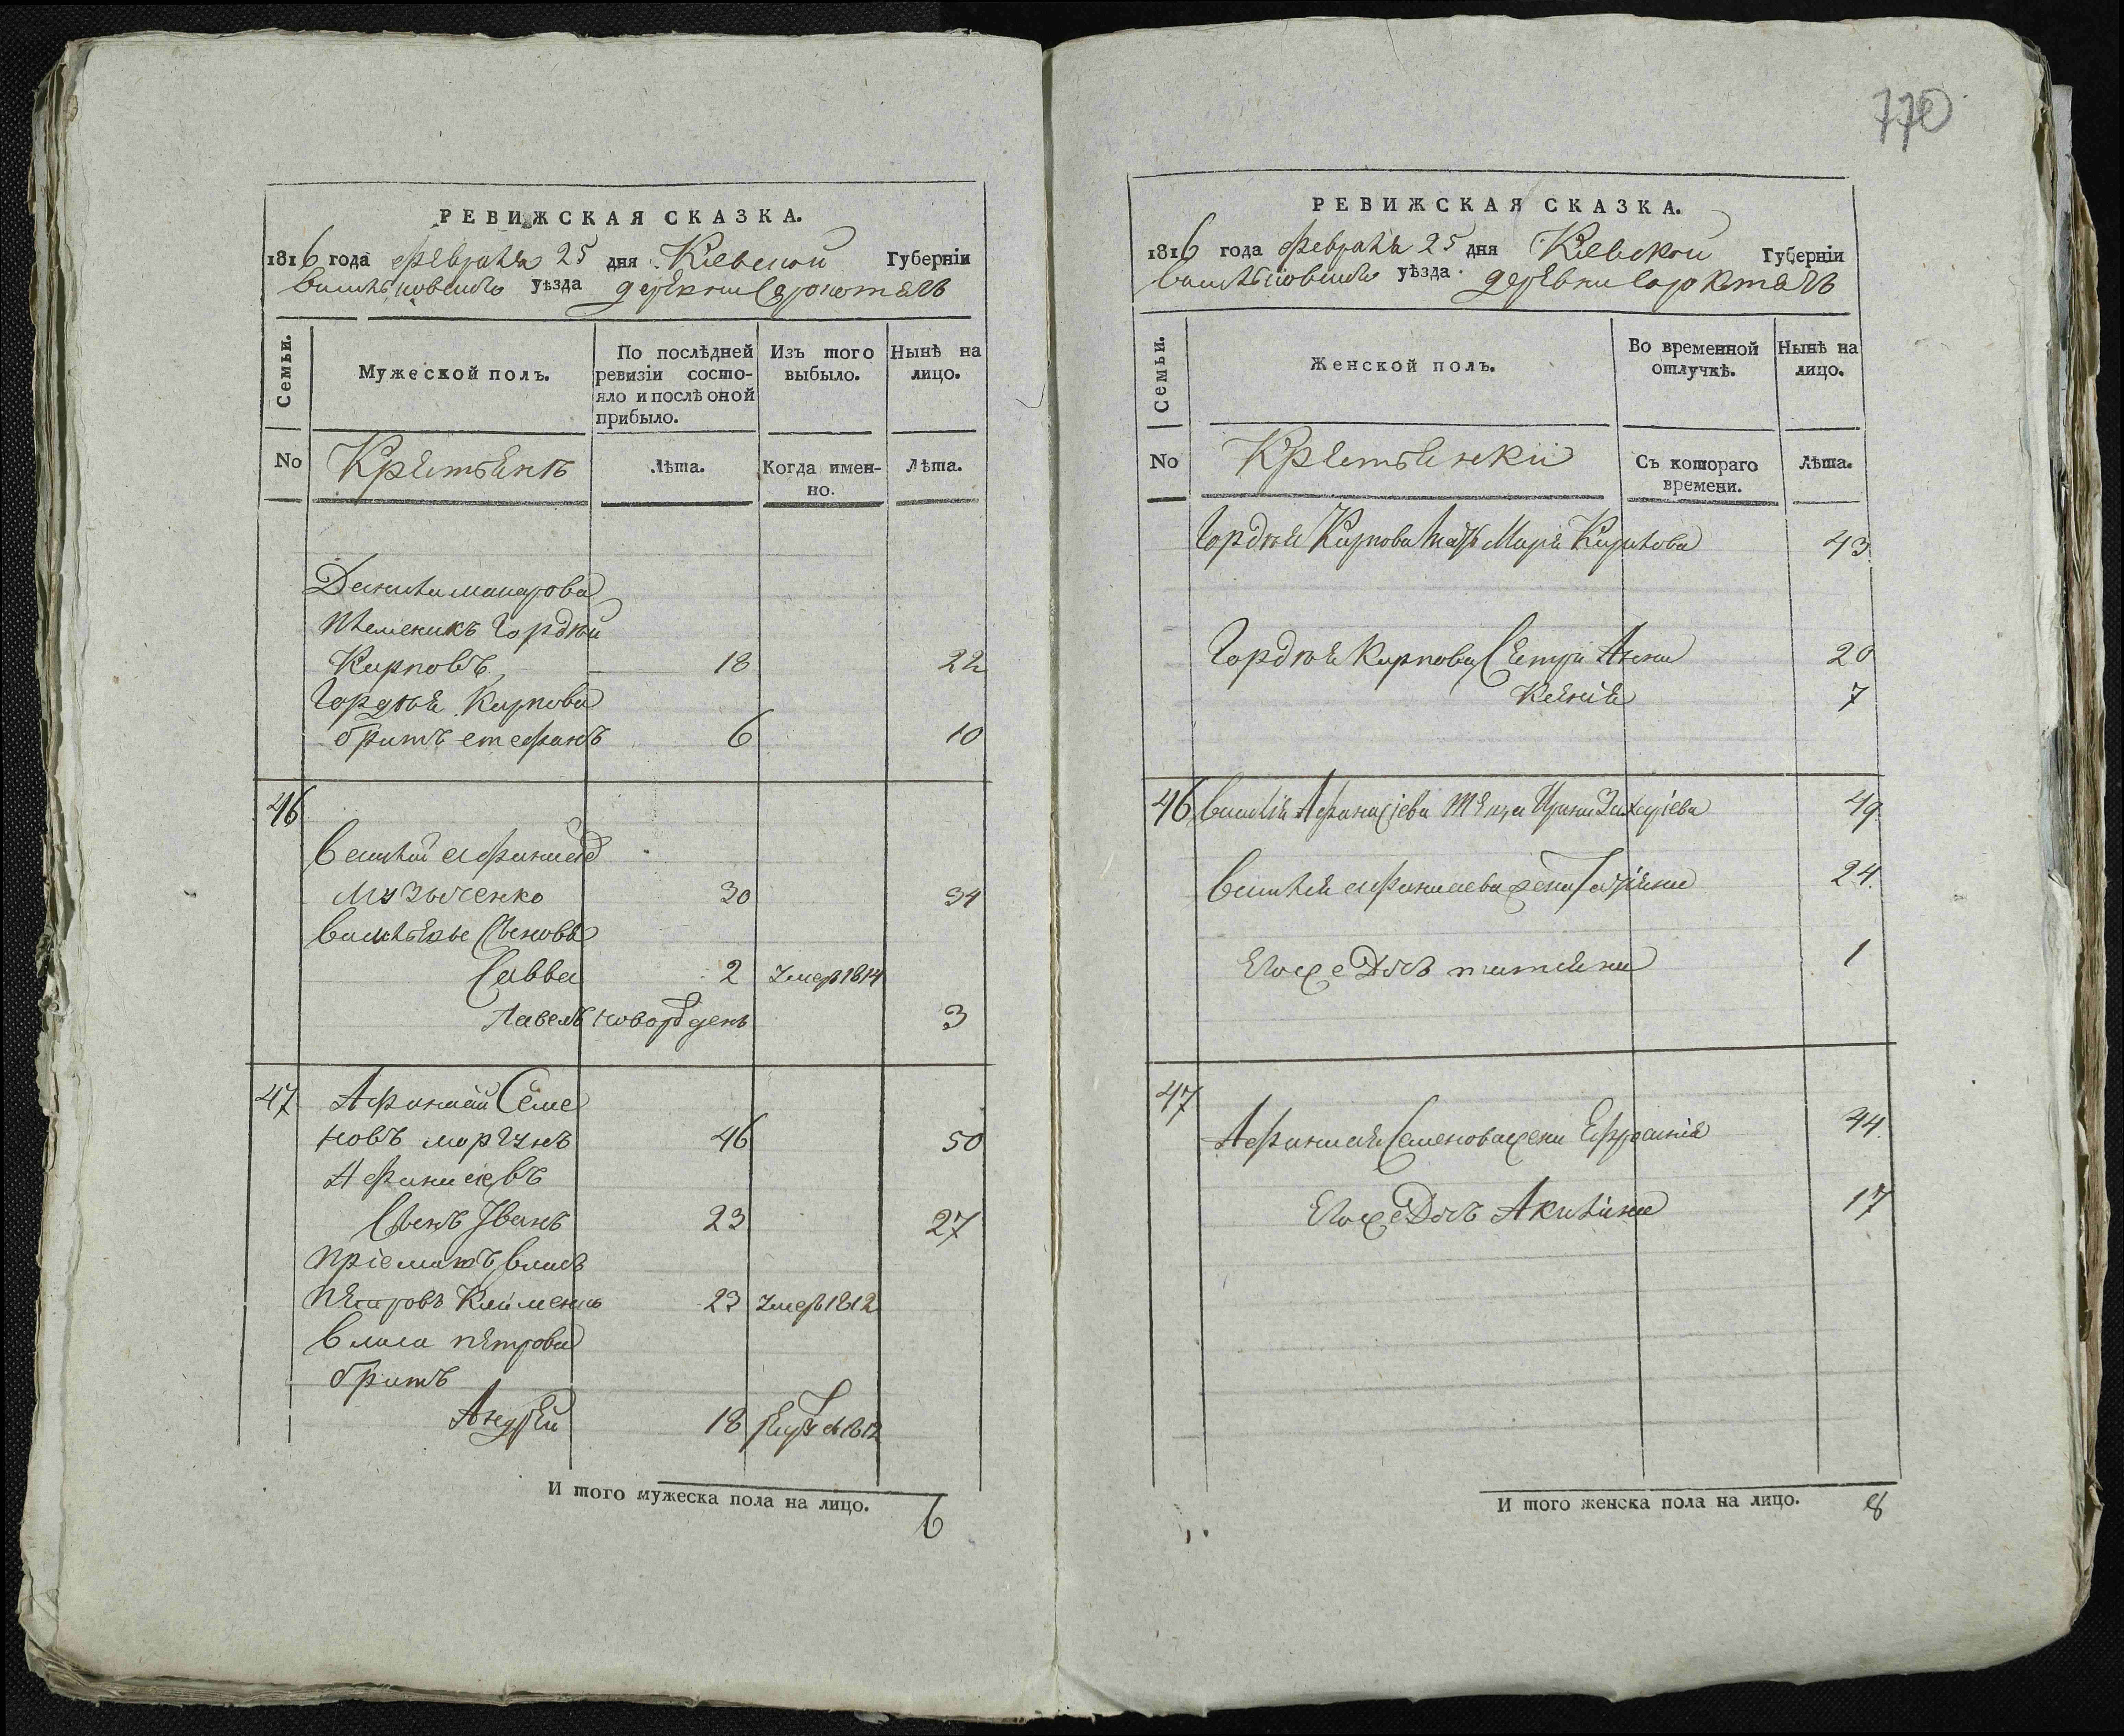 770
РЕВИЖСКАЯ СКАЗКА.
1816 года февраля 25 дня Кіевской Губерніи
васильковского уѣзда деревни Сорокотягъ
Семьи.
Мужеской полъ.
По послѣдней ревизіи состо-
яло и послѣ оной прибыло.
Изъ того выбыло.
Нынѣ на лицо.
No
Крестьянъ
Лѣта.
Когда имен-
но.
Лѣта.
Данила макарова
племеникъ Гордѣй
Карповъ 18 22
Гордѣя Карпова
братъ стефанъ 6 10
46
василій афанасіевъ
Музыченко 30 34
васильевы Сыновья
Савва 2 умеръ 1814
Павелъ новорожденъ 3
47 Афанасій Семе
новъ моргунъ 46 50
Афанасіевъ
Сынъ Иванъ 23 27
пріемышъ власъ
петровъ Клименко 23 умеръ 1812
власа петрова
братъ
Андрей 18 1812
И того мужеска пола на лицо. 6
РЕВИЖСКАЯ СКАЗКА.
1816 года февраля 25 дня Кіевской Губерніи
васильковского уѣзда деревни Сорокотягъ
Семьи.
Женской полъ.
Во временной отлучкѣ.
Нынѣ на лицо.
No
Крестьянки
Съ котораго времени.
Лѣта.
Гордѣя Карпова мать Марья Кирилова 43
Гордѣя Карпова Сестра Анна 20
Ксенія 7
46 василія Афанасіева теща Ирина Захаріева 49
василія афанасіева жена 24.
Его же Дочь татіяна 1
47
Афанасія Семенова жена Ефросинія 44.
Его же Дочь Акилина 17
И того женска пола на лицо. 8